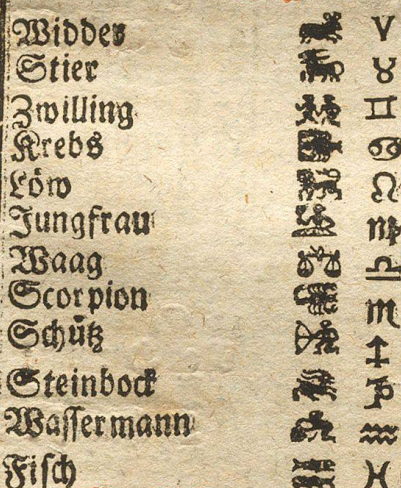 Widder ♈
Stier ♉
Zwilling ♊
Krebs ♋
Löw ♌
Jungfrau ♍
Waag ♎
Scorpion ♏
Schütz ♐
Steinbock ♑
Wassermann ♒
Fisch ♓